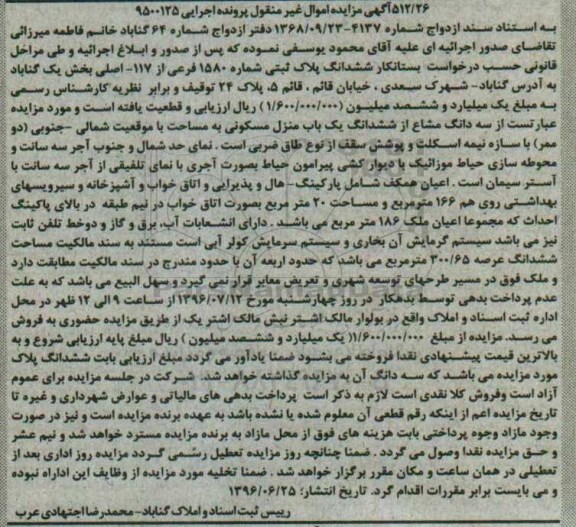 ۵۱۲/۲۶آگهی مزایده اموال غیر منقول پرونده اجرایی ۹۵۰۰۱۲۵
به استناد سند ازدواج شماره ۴۱۳۷-۱۳۶۸/۰۹/۲۳ دفتر ازدواج شماره ۶۴ گناباد خانم فاطمه میرزائی
تقاضای صدور اجرائیه ای علیه آقای محمود یوسفی نموده که پس از صدور و ابلاغ اجرائیه و طی مراحل
قانونی حسب درخواست بستانکار ششدانگ پلاک ثبتی شماره ۱۵۸۰ فرعی از ۱۱۷- اصلی بخش یک گناباد
به آدرس گناباد- شهرک سعدی ، خیابان قائم ، قائم ۵، پلاک ۲۴ توقیف و برابر نظریه کارشناس رسمی
به مبلغ یک میلیارد و ششصد میلیون (۱/۶۰۰/۰۰۰/۰۰۰) ریال ارزیابی و قطعیت یافته است و مورد مزایده
عبارتست از سه دانگ مشاع از ششدانگ یک باب منزل مسکونی به مساحت با موقعیت شمالی -جنوبی (دو
ممر) با سازه نیمه اسکلت و پوشش سقف از نوع طاق ضربی است . نمای حد شمال و جنوب آجر سه سانت و
محوطه سازی حیاط موزائیک با دیوار کشی پیرامون حیاط بصورت آجری با نمای تلفیقی از آجر سه سانت با
آستر سیمان است . اعیان همکف شامل پارکینگ- هال و پذیرایی و اتاق خواب و آشپزخانه و سیرویسهای
بهداشتی روی هم ۱۶۶ مترمربع و مساحت ۲۰ متر مربع بصورت اتاق خواب در نیم طبقه در بالای پاکینگ
احداث که مجموعا اعیان ملک ۱۸۶ متر مربع می باشد . دارای انشعابات آب، برق و گاز و دوخط تلفن ثابت
نیز می باشد سیستم گرمایش آن بخاری و سیستم سرمایش کولر آبی است مستند به سند مالکیت مساحت
ششدانگ عرصه ۳۰۰/۶۵ مترمربع می باشد که حدود اربعه آن با حدود مندرج در سند مالکیت مطابقت دارد
و ملک فوق در مسیر طرحهای توسعه شهری و تعریض معابر قرار نمی گیرد و سهل البیع می باشد که به علت
عدم پرداخت بدهی توسط بدهکار در روز چهارشنبه مورخ ۱۳۹۶/۰۷/۱۲ از ساعت ۹ الی ۱۲ ظهر در محل
اداره ثبت اسناد و املاک واقع در بولوار مالک اشتر نبش مالک اشتر یک از طریق مزایده حضوری به فروش
می رسد. مزایده از مبلغ ۱/۶۰۰/۰۰۰/۰۰۰( یک میلیارد و ششصد میلیون ) ریال مبلغ پایه ارزیابی شروع و به
بالاترین قیمت پیشنهادی نقدا فروخته می بشود ضمنا یادآور می گردد مبلغ ارزیابی بابت ششدانگ پلاک
مورد مزایده می باشد که سه دانگ آن به مزایده گذاشته خواهد شد. شرکت در جلسه مزایده برای عموم
آزاد است وفروش کلا نقدی است لازم به ذکر است پرداخت بدهی های مالیاتی و عوارض شهرداری و غیره تا
تاریخ مزایده اعم از اینکه رقم قطعی آن معلوم شده یا نشده باشد به عهده برنده مزایده است و نیز در صورت
وجود مازاد وجوه پرداختی بابت هزینه های فوق از محل مازاد به برنده مزایده مسترد خواهد شد و نیم عشر
و حق مزایده نقدا وصول می گردد . ضمنا چنانچه روز مزایده تعطیل رسمی گردد مزایده روز اداری بعد از
تعطیلی در همان ساعت و مکان مقرر برگزار خواهد شد . ضمنا تخلیه مورد مزایده از وظایف این اداراه نبوده
و می بایست برابر مقررات اقدام گرد. تاریخ انتشار؛ ۱۳۹۶/۰۶/۲۵
رییس ثبت اسناد و املاک گناباد-محمدرضا اجتهادی عرب